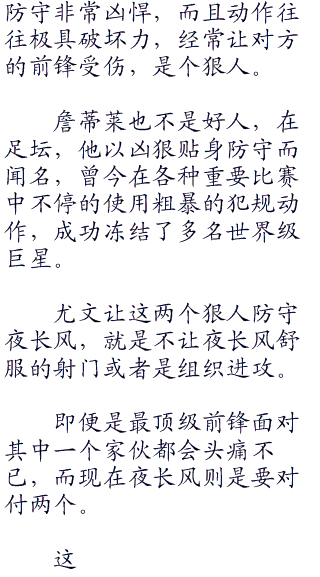 防守非常凶悍，而且动作往
往极具破坏力，经常让对方
的前锋受伤，是个狠人。
詹蒂莱也不是好人，在
足坛，他以凶狠贴身防守而
闻名，曾今在各种重要比赛
中不停的使用粗暴的犯规动
作，成功冻结了多名世界级
巨星。
尤文让这两个狠人防守
夜长风，就是不让夜长风舒
服的射门或者是组织进攻。
即便是最顶级前锋面对
其中一个家伙都会头痛不
已，而现在夜长风则是要对
付两个。
这